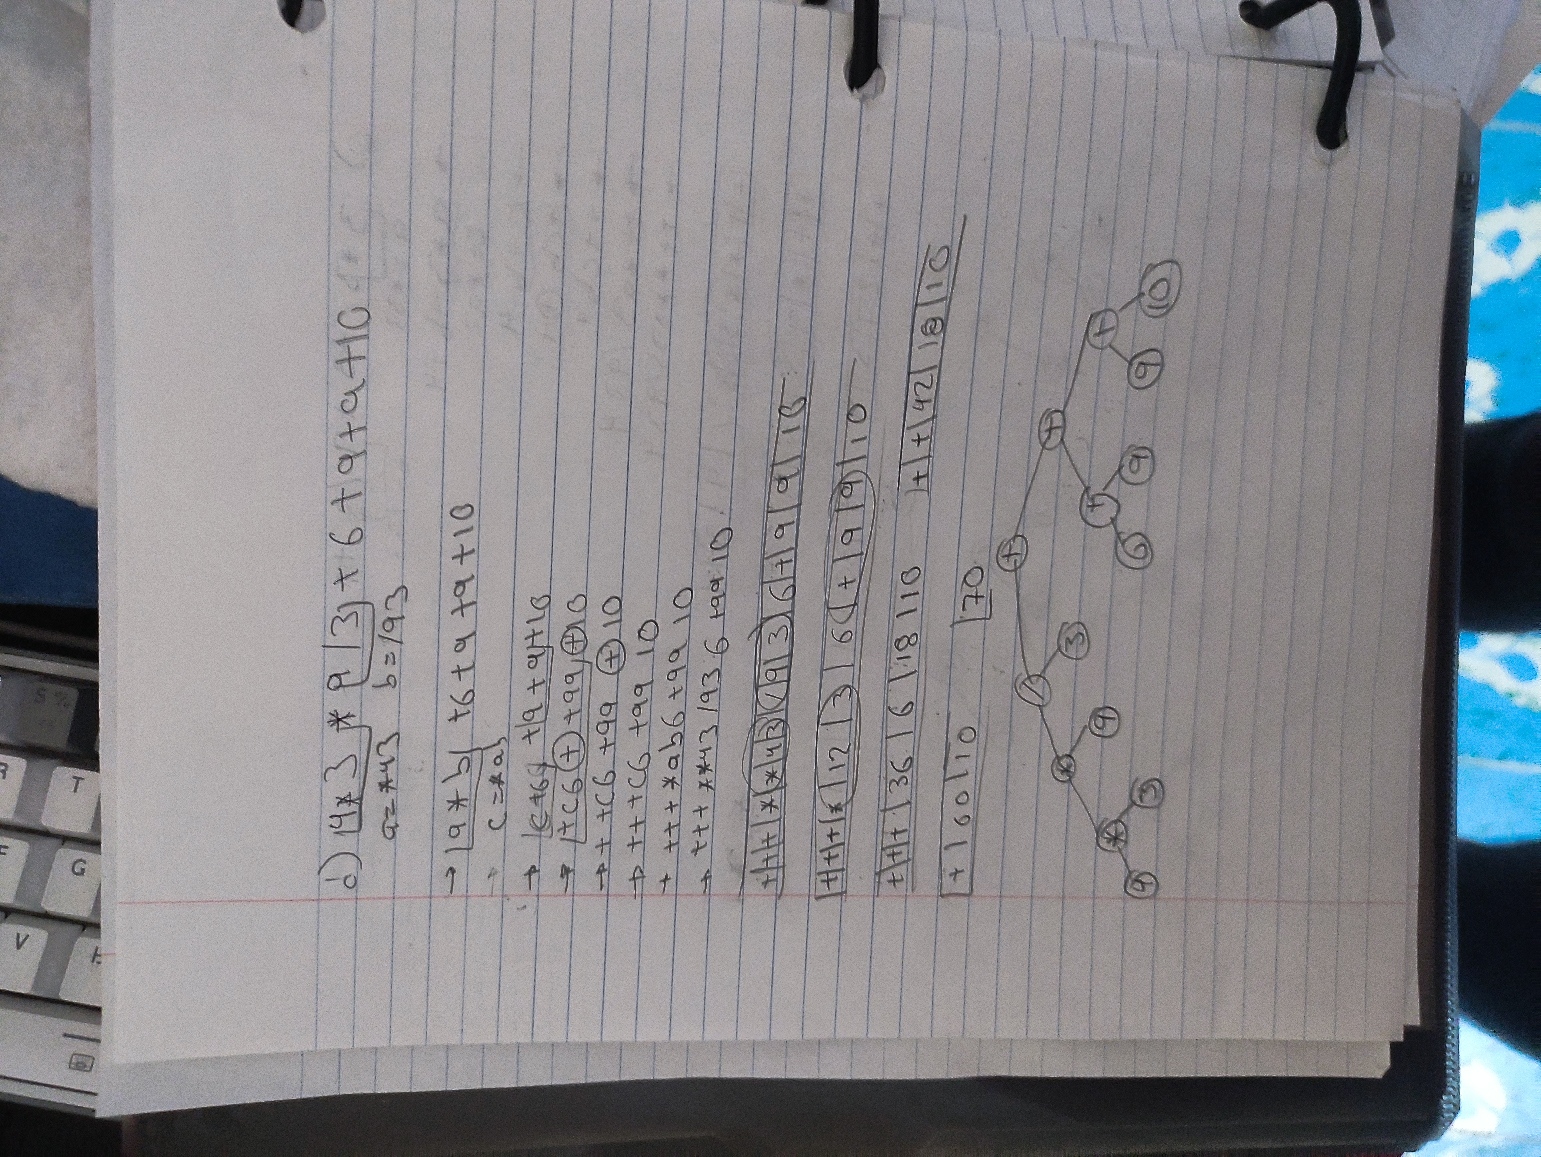 d) 4*3 * 9/3 + 6 + 9 + 9 + 10
a = *43 b = /93
→ a * b + 6 + 9 + 9 + 10
→ c = *ab
→ c+6 + 9 + 9 + 10
→ +c6 + +99 + 10
→ + +c6 +99 + 10
→ + + +c6 +99 10
+ + + + *ab6 +99 10
→ + + + * *43 /93 6 +99 10
+|+|+|*|*|4|3|/|9|3|6|+|9|9|10
+|+|+|*|12|3|6|+|9|9|10
+|+|+|36|6|18|10 |+|+|42|18|10
|+|60|10
|70
+
/ +
* 3 + +
* 9 6 9 9 10
4 3